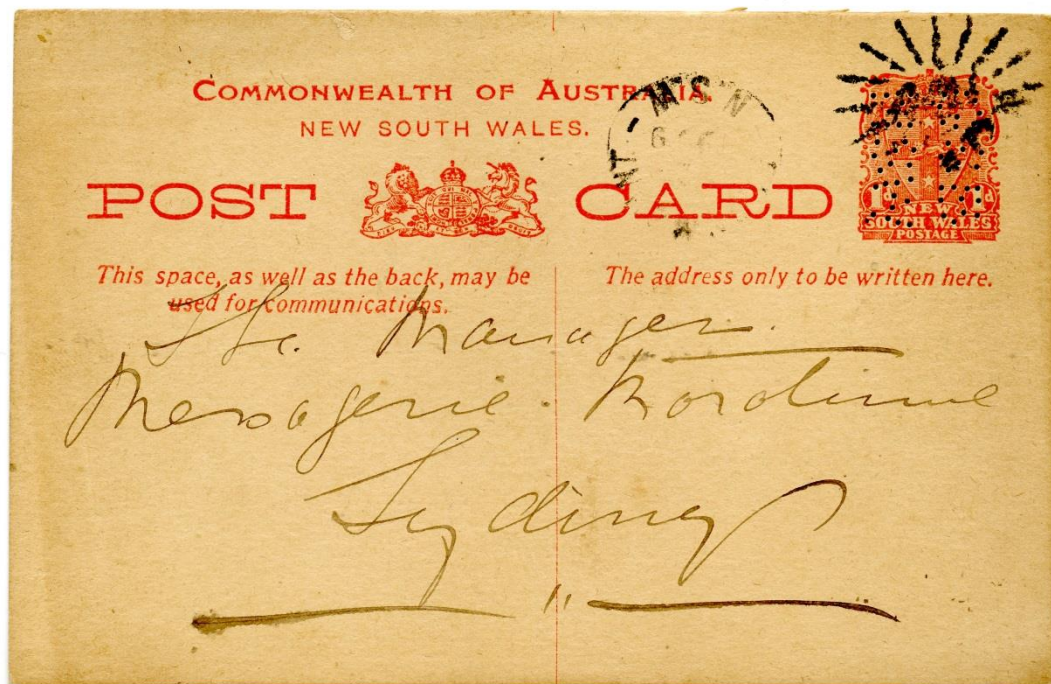 COMMONWEALTH OF AUSTRALIA.
NEW SOUTH WALES.
POST CARD
1d
NEW
SOUTH WALES
POSTAGE
N.S.W
This space, as well as the back, may be
used for communications.
The address only to be written here.
The Manager.
Messagerie
Sydney